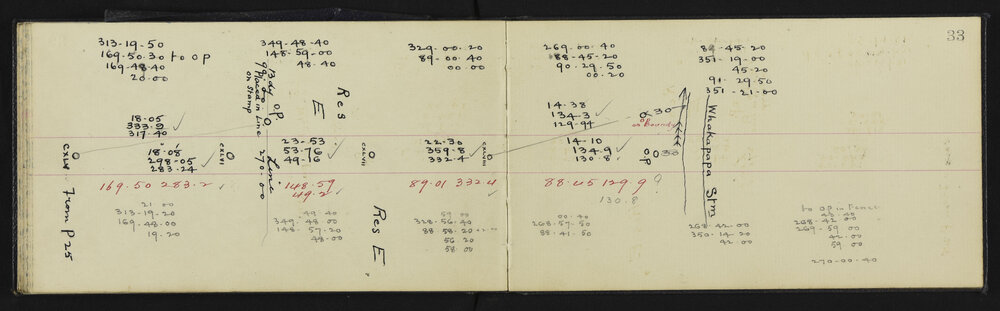 33
313-19-50
169-50-30 to op
169-48-40
20-00
349-48-40
148-59-00
48-40
329-00-20
89-00-40
00-00
269-00-40
88-45-20
90-29-50
00-20
89-45-20
351-19-00
45-20
91-29-50
351-21-00
Bdy op
Placed in Line
on Stamp
Res
E
18-05
333.9
317-40
14-38
134-3
129-94
30
op
on Boundy
Whakapapa Stm
CXLVI
From P 25
18-08
298-05
283-24
CXLVII
Line
270.00
23-53
53-76
49-16
CXLVIII
22-30
359-8
332-4
14-10
134-9
130-8
op
169.50 283.2
148.59
49.2
89.01 332.4
88.45 129.9
130.8
21-00
313-19-20
169-48-00
19-20
49-40
349-48-00
148-57-20
48-00
Res E
59-00
328-56-40
88-58-20
56-20
58-00
00-40
268-57-50
88-41-50
268-42-00
350-14-20
42-00
to op in Fence
43-40
268-42-00
269-59-00
42-00
59-00
270-00-40